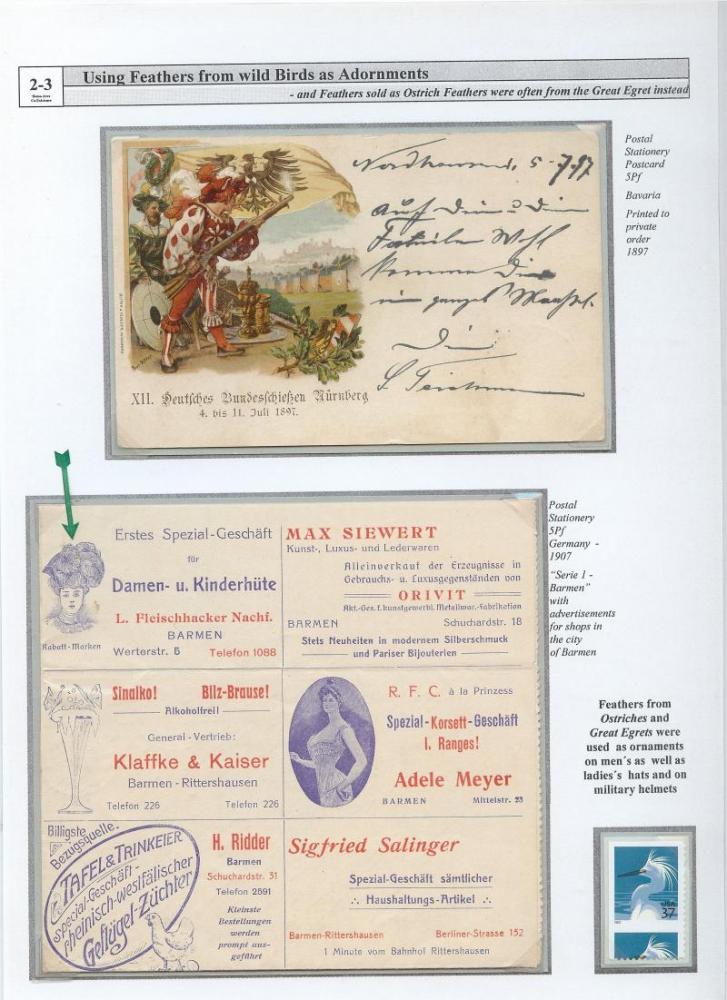 2-3
Using Feathers from wild Birds as Adornments
- and Feathers sold as Ostrich Feathers were often from the Great Egret instead
Postal
Stationery
Postcard
5Pf
Bavaria
Printed to
private
order
1897
Auf
XII. Deutsches Bundesschießen Nürnberg
4. bis 11. Juli 1897.
Postal
Stationery
5Pf
Germany -
1907
"Serie 1 -
Barmen"
with
advertisements
for shops in
the city
of Barmen
Erstes Spezial-Geschäft
für
Damen- u. Kinderhüte
L. Fleischhacker Nachf.
BARMEN
Werterstr. 5 Telefon 1088
Rabatt-Marken
MAX SIEWERT
Kunst-, Luxus- und Lederwaren
Alleinverkauf der Erzeugnisse in
Gebrauchs- u. Luxusgegenständen von
ORIVIT
Akt.-Ges. f. kunstgewerbl. Metallwar.-Fabrikation
BARMEN Schuchardstr. 18
Stets Neuheiten in modernem Silberschmuck
und Pariser Bijouterien
Sinalko! Bilz-Brause!
Alkoholfrei!
General-Vertrieb:
Klaffke & Kaiser
Barmen-Rittershausen
Telefon 226 Telefon 226
R. F. C. à la Prinzess
Spezial-Korsett-Geschäft
I. Ranges!
Adele Meyer
BARMEN Mittelstr. 23
Billigste
Bezugsquelle.
TAFEL & TRINKEIER
Special-Geschäft-
rheinisch-westfälischer
Geflügel-Züchter
H. Ridder
Barmen
Schuchardstr. 31
Telefon 2591
Kleinste
Bestellungen
werden
prompt aus-
geführt
Sigfried Salinger
Spezial-Geschäft sämtlicher
∴ Haushaltungs-Artikel ∴
Barmen-Rittershausen Berliner-Strasse 152
1 Minute vom Bahnhof Rittershausen
Feathers from
Ostriches and
Great Egrets were
used as ornaments
on men´s as well as
ladies´s hats and on
military helmets
USA
37